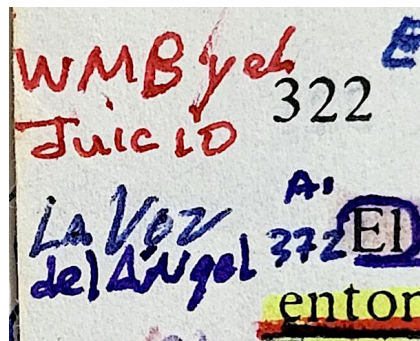 WMB y el
Juicio
322
La Voz
del Ángel
A1
372 El
entor